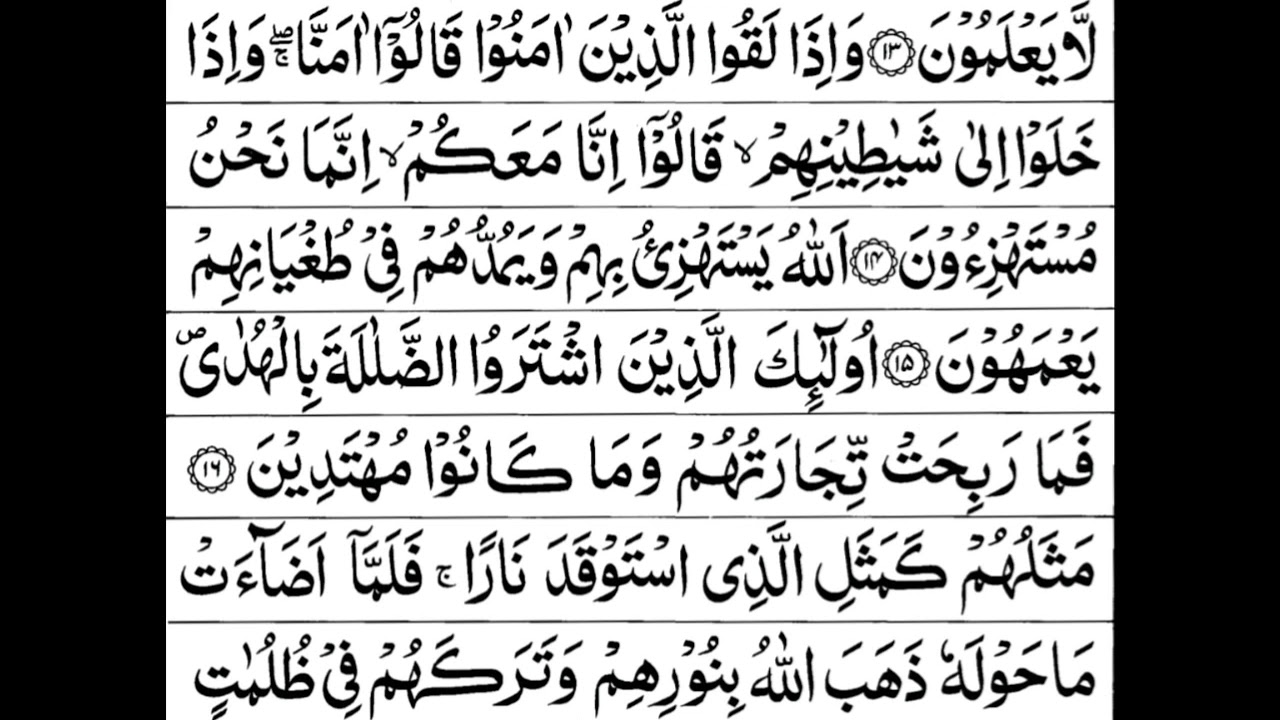 لَّا يَعْلَمُوْنَ ﴿۱۳﴾ وَاِذَا لَقُوا الَّذِيْنَ اٰمَنُوْا قَالُوْٓا اٰمَنَّا ۖۚ وَاِذَا
خَلَوْا اِلٰى شَيٰطِيْنِهِمْ ۙ قَالُوْٓا اِنَّا مَعَكُمْ ۙ اِنَّمَا نَحْنُ
مُسْتَهْزِءُوْنَ ﴿۱۴﴾ اَللّٰهُ يَسْتَهْزِئُ بِهِمْ وَيَمُدُّهُمْ فِيْ طُغْيَانِهِمْ
يَعْمَهُوْنَ ﴿۱۵﴾ اُولٰٓئِكَ الَّذِيْنَ اشْتَرَوُا الضَّلٰلَةَ بِالْهُدٰى ۪
فَمَا رَبِحَتْ تِّجَارَتُهُمْ وَمَا كَانُوْا مُهْتَدِيْنَ ﴿۱۶﴾
مَثَلُهُمْ كَمَثَلِ الَّذِى اسْتَوْقَدَ نَارًا ۚ فَلَمَّآ اَضَآءَتْ
مَا حَوْلَهٗ ذَهَبَ اللّٰهُ بِنُوْرِهِمْ وَتَرَكَهُمْ فِيْ ظُلُمٰتٍ